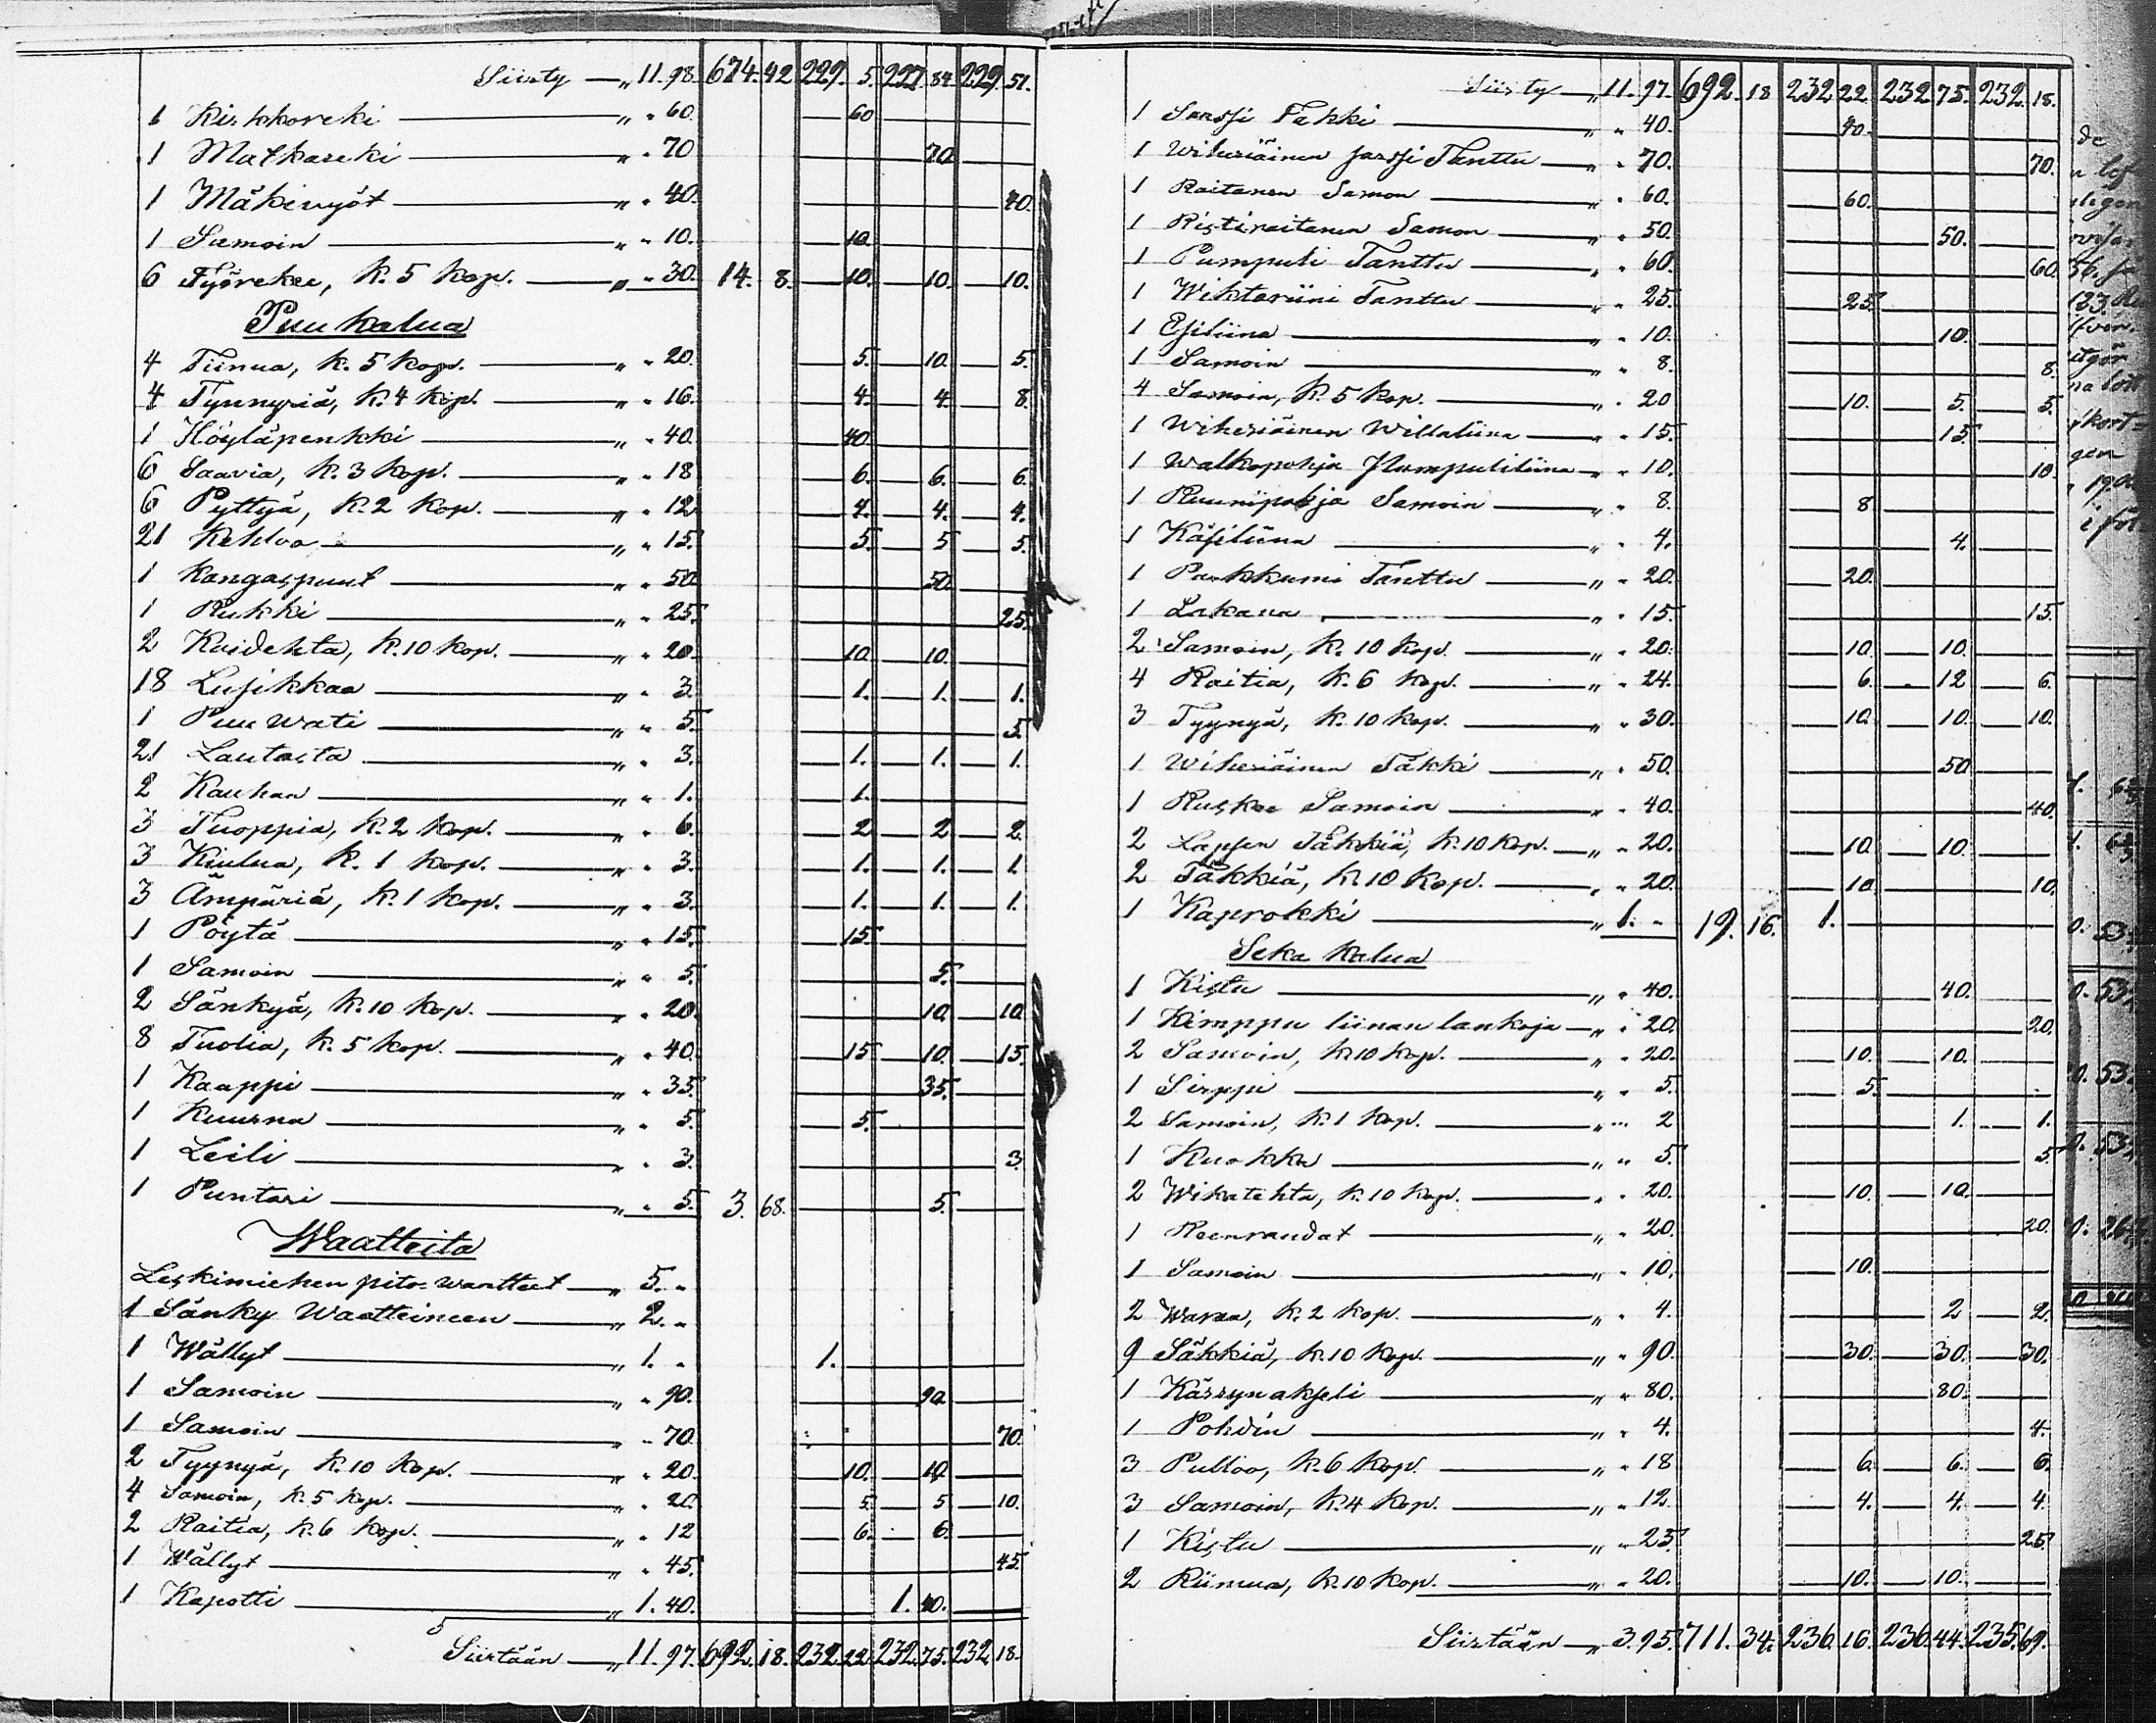 Siirty — „ 11. 98. 674. 42 229. 5. 227. 84. 229. 51.
1 Kirkkoreki — „ „ 60. 60
1 Matkareki — „ „ 70 70
1 Mäkivyöt — „ „ 40. 40.
1 Samoin — „ „ 10. 10.
6 Työrekee, k. 5 kop. — „ „ 30. 14. 8. 10. 10. 10.
Puu kalua
4 Tiinua, k. 5 kop. — „ „ 20. 5. 10. 5.
4 Tynnyriä, k. 4 kop. — „ „ 16. 4. 4. 8.
1 Höyläpenkki — „ „ 40. 40.
6 Saavia, k. 3 kop. — „ „ 18 6. 6. 6.
6 Pyttyä, k. 2 kop. — „ „ 12 4. 4. 4.
21 Kehloa — „ „ 15. 5. 5 5.
1 Kangaspuut — „ „ 50. 50.
1 Rukki — „ „ 25. 25.
2 Kaidehta, k. 10 kop. — „ „ 20. 10. 10.
18 Lusikkaa — „ „ 3. 1. 1. 1.
1 Puu wati — „ „ 5. 5.
21 Lautasta — „ „ 3. 1. 1. 1.
2 Kauhan — „ „ 1. 1.
3 Tuoppia, k. 2 kop. — „ „ 6. 2 2 2.
3 Kiulua, k. 1 kop. — „ „ 3. 1. 1. 1.
3 Ämpäriä, k. 1 kop. — „ „ 3. 1. 1. 1.
1 Pöytä — „ „ 15. 15.
1 Samoin — „ „ 5. 5.
2 Sänkyä, k. 10 kop. — „ „ 20. 10. 10.
8 Tuolia, k. 5 kop. — „ „ 40. 15 10. 15.
1 Kaappi — „ „ 35. 35.
1 Kuurna — „ „ 5. 5.
1 Leili — „ „ 3. 3.
1 Puntari — „ „ 5. 3. 68. 5.
Waatteita
Leskimiehen pito waatteet — „ 5. „
1 Sänky Waatteineen — „ 2. „
1 Wällyt — „ 1. „ 1.
1 Samoin — „ „ 90. 90.
1 Samoin — „ „ 70. 70.
2 Tyynyä, k. 10 kop. — „ „ 20 10. 10.
4 Samoin, k. 5 kop. — „ „ 20 5. 5 10.
2 Raitia, k. 6 kop. — „ „ 12 6. 6.
1 Wällyt — „ „ 45. 45.
1 Kapotti — „ 1. 40. 1. 40.
Siirtään — „ 11. 97. 692. 18. 232. 22. 232. 75. 232. 18.
Siirty — „ 11. 97. 692. 18 232 22. 232. 75. 232. 18.
1 Sarssi Täkki — „ „ 40. 40.
1 Wiheriäinen sarssi Tänttu — „ „ 70. 70.
1 Raitanen Samon — „ „ 60. 60.
1 Ristiraitanen Samon — „ „ 50. 50.
1 Pumpuli Tänttu — „ „ 60. 60.
1 Wiktoriini Tänttu — „ „ 25. 25.
1 Esiliina — „ „ 10. 10.
1 Samoin — „ „ 8. 8.
4 Samoin, k. 5 kop. — „ „ 20 10. 5. 5.
1 Wiheriäinen Willaliina — „ „ 15. 15.
1 Walkopohja Pumpuliliina — „ „ 10. 10.
1 Ruunipohja Samoin — „ „ 8. 8
1 Käsiliina — „ „ 4. 4.
1 Parkkumi Tänttu — „ „ 20. 20.
1 Lakana — „ „ 15. 15.
2 Samoin, k. 10 kop. — „ „ 20. 10. 10.
4 Raitia, k. 6 kop. — „ „ 24. 6. 12 6.
3 Tyynyä, k. 10 kop. — „ „ 30. 10. 10. 10.
1 Wiheriäinen Täkki — „ „ 50. 50
1 Ruskee Samoin — „ „ 40. 40.
2 Lapsen Täkkiä, k. 10 kop. — „ „ 20. 10. 10.
2 Täkkiä, k. 10 kop. — „ „ 20. 10. 10.
1 Kaprokki — „ 1. „ 19. 16. 1.
Seka kalua
1 Kistu — „ „ 40. 40.
1 Kimppu liinan lankoja — „ „ 20. 20.
2 Samoin, k. 10 kop. — „ „ 20. 10. 10.
1 Sirppi — „ „ 5. 5.
2 Samoin, k. 1 kop. — „ „ 2 1. 1.
1 Kuokka — „ „ 5. 5
2 Wikatehta, k. 10 kop. — „ „ 20. 10. 10.
1 Reenraudat — „ „ 20. 20.
1 Samoin — „ „ 10. 10.
2 Waraa, k. 2 kop. — „ „ 4. 2 2.
9 Säkkiä, k. 10 kop. — „ „ 90. 30. 30. 30.
1 Kärrynakseli — „ „ 80. 80.
1 Pohdin — „ „ 4. 4.
3 Pulloo, k. 6 kop. — „ „ 18 6. 6. 6.
3 Samoin, k. 4 kop. — „ „ 12 4. 4. 4.
1 Kistu — „ „ 25. 25.
2 Riimua, k. 10 kop. — „ „ 20. 10. 10.
Siirtään — „ 3. 95. 711. 34. 236. 16. 236. 44. 235. 69.